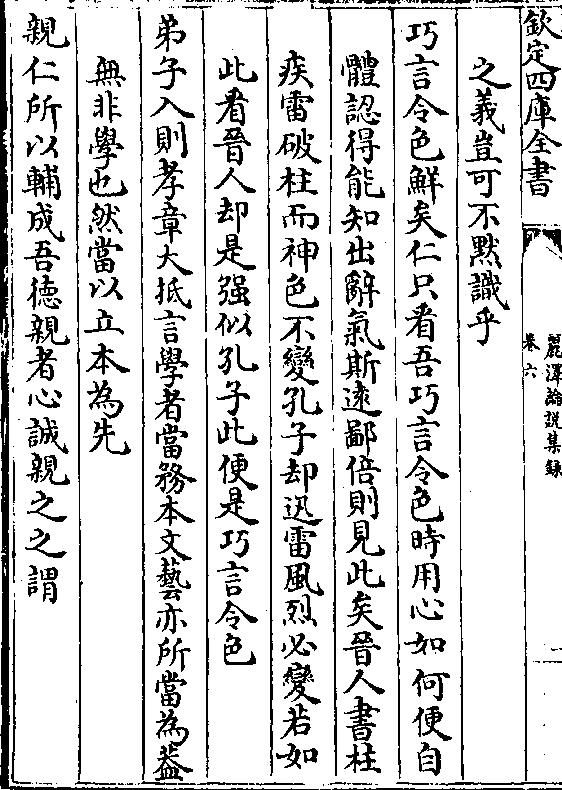 欽定四庫全書
麗澤論說集録
卷六
之義豈可不黙識乎
巧言令色鮮矣仁只看吾巧言令色時用心如何便自
體認得能知出辭氣斯逺鄙倍則見此矣晉人書柱
疾雷破柱而神色不變孔子却迅雷風烈必變若如
此看晉人却是强似孔子此便是巧言令色
弟子入則孝章大抵言學者當務本文藝亦所當為葢
無非學也然當以立本為先
親仁所以輔成吾徳親者心誠親之之謂